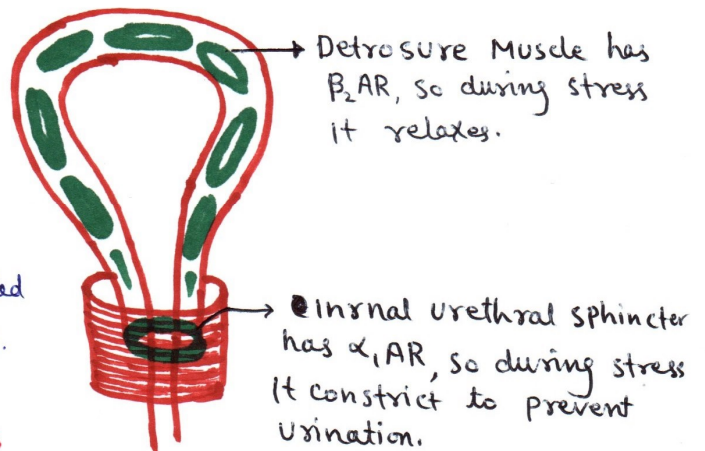 Detrosure Muscle has
β₂AR, so during stress
it relaxes.
Inrnal urethral sphincter
has α₁AR, so during stress
It constrict to prevent
urination.